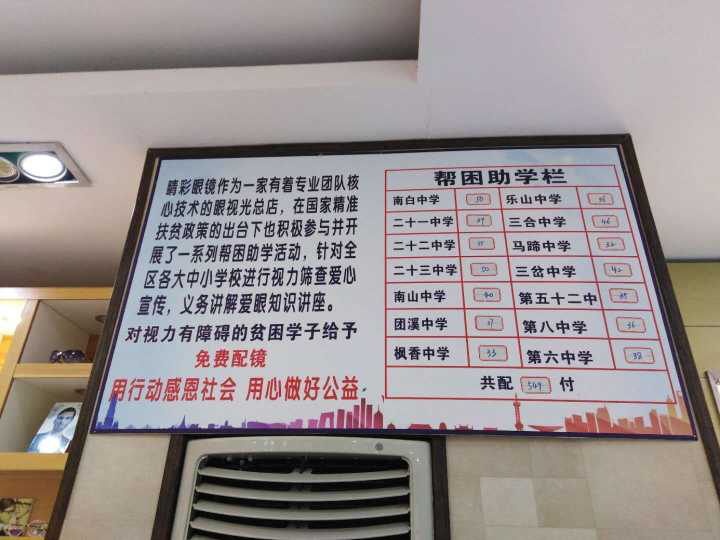 睛彩眼镜作为一家有着专业团队核
心技术的眼视光总店，在国家精准
扶贫政策的出台下也积极参与并开
展了一系列帮困助学活动，针对全
区各大中小学校进行视力筛查爱心
宣传，义务讲解爱眼知识讲座。
对视力有障碍的贫困学子给予
免费配镜
用行动感恩社会 用心做好公益
帮困助学栏
南白中学 乐山中学
二十一中学 三合中学 46
二十二中学 马蹄中学
二十三中学 50 三岔中学 42
南山中学 40 第五十二中
团溪中学 第八中学 36
枫香中学 33 第六中学 38
共配 549 付